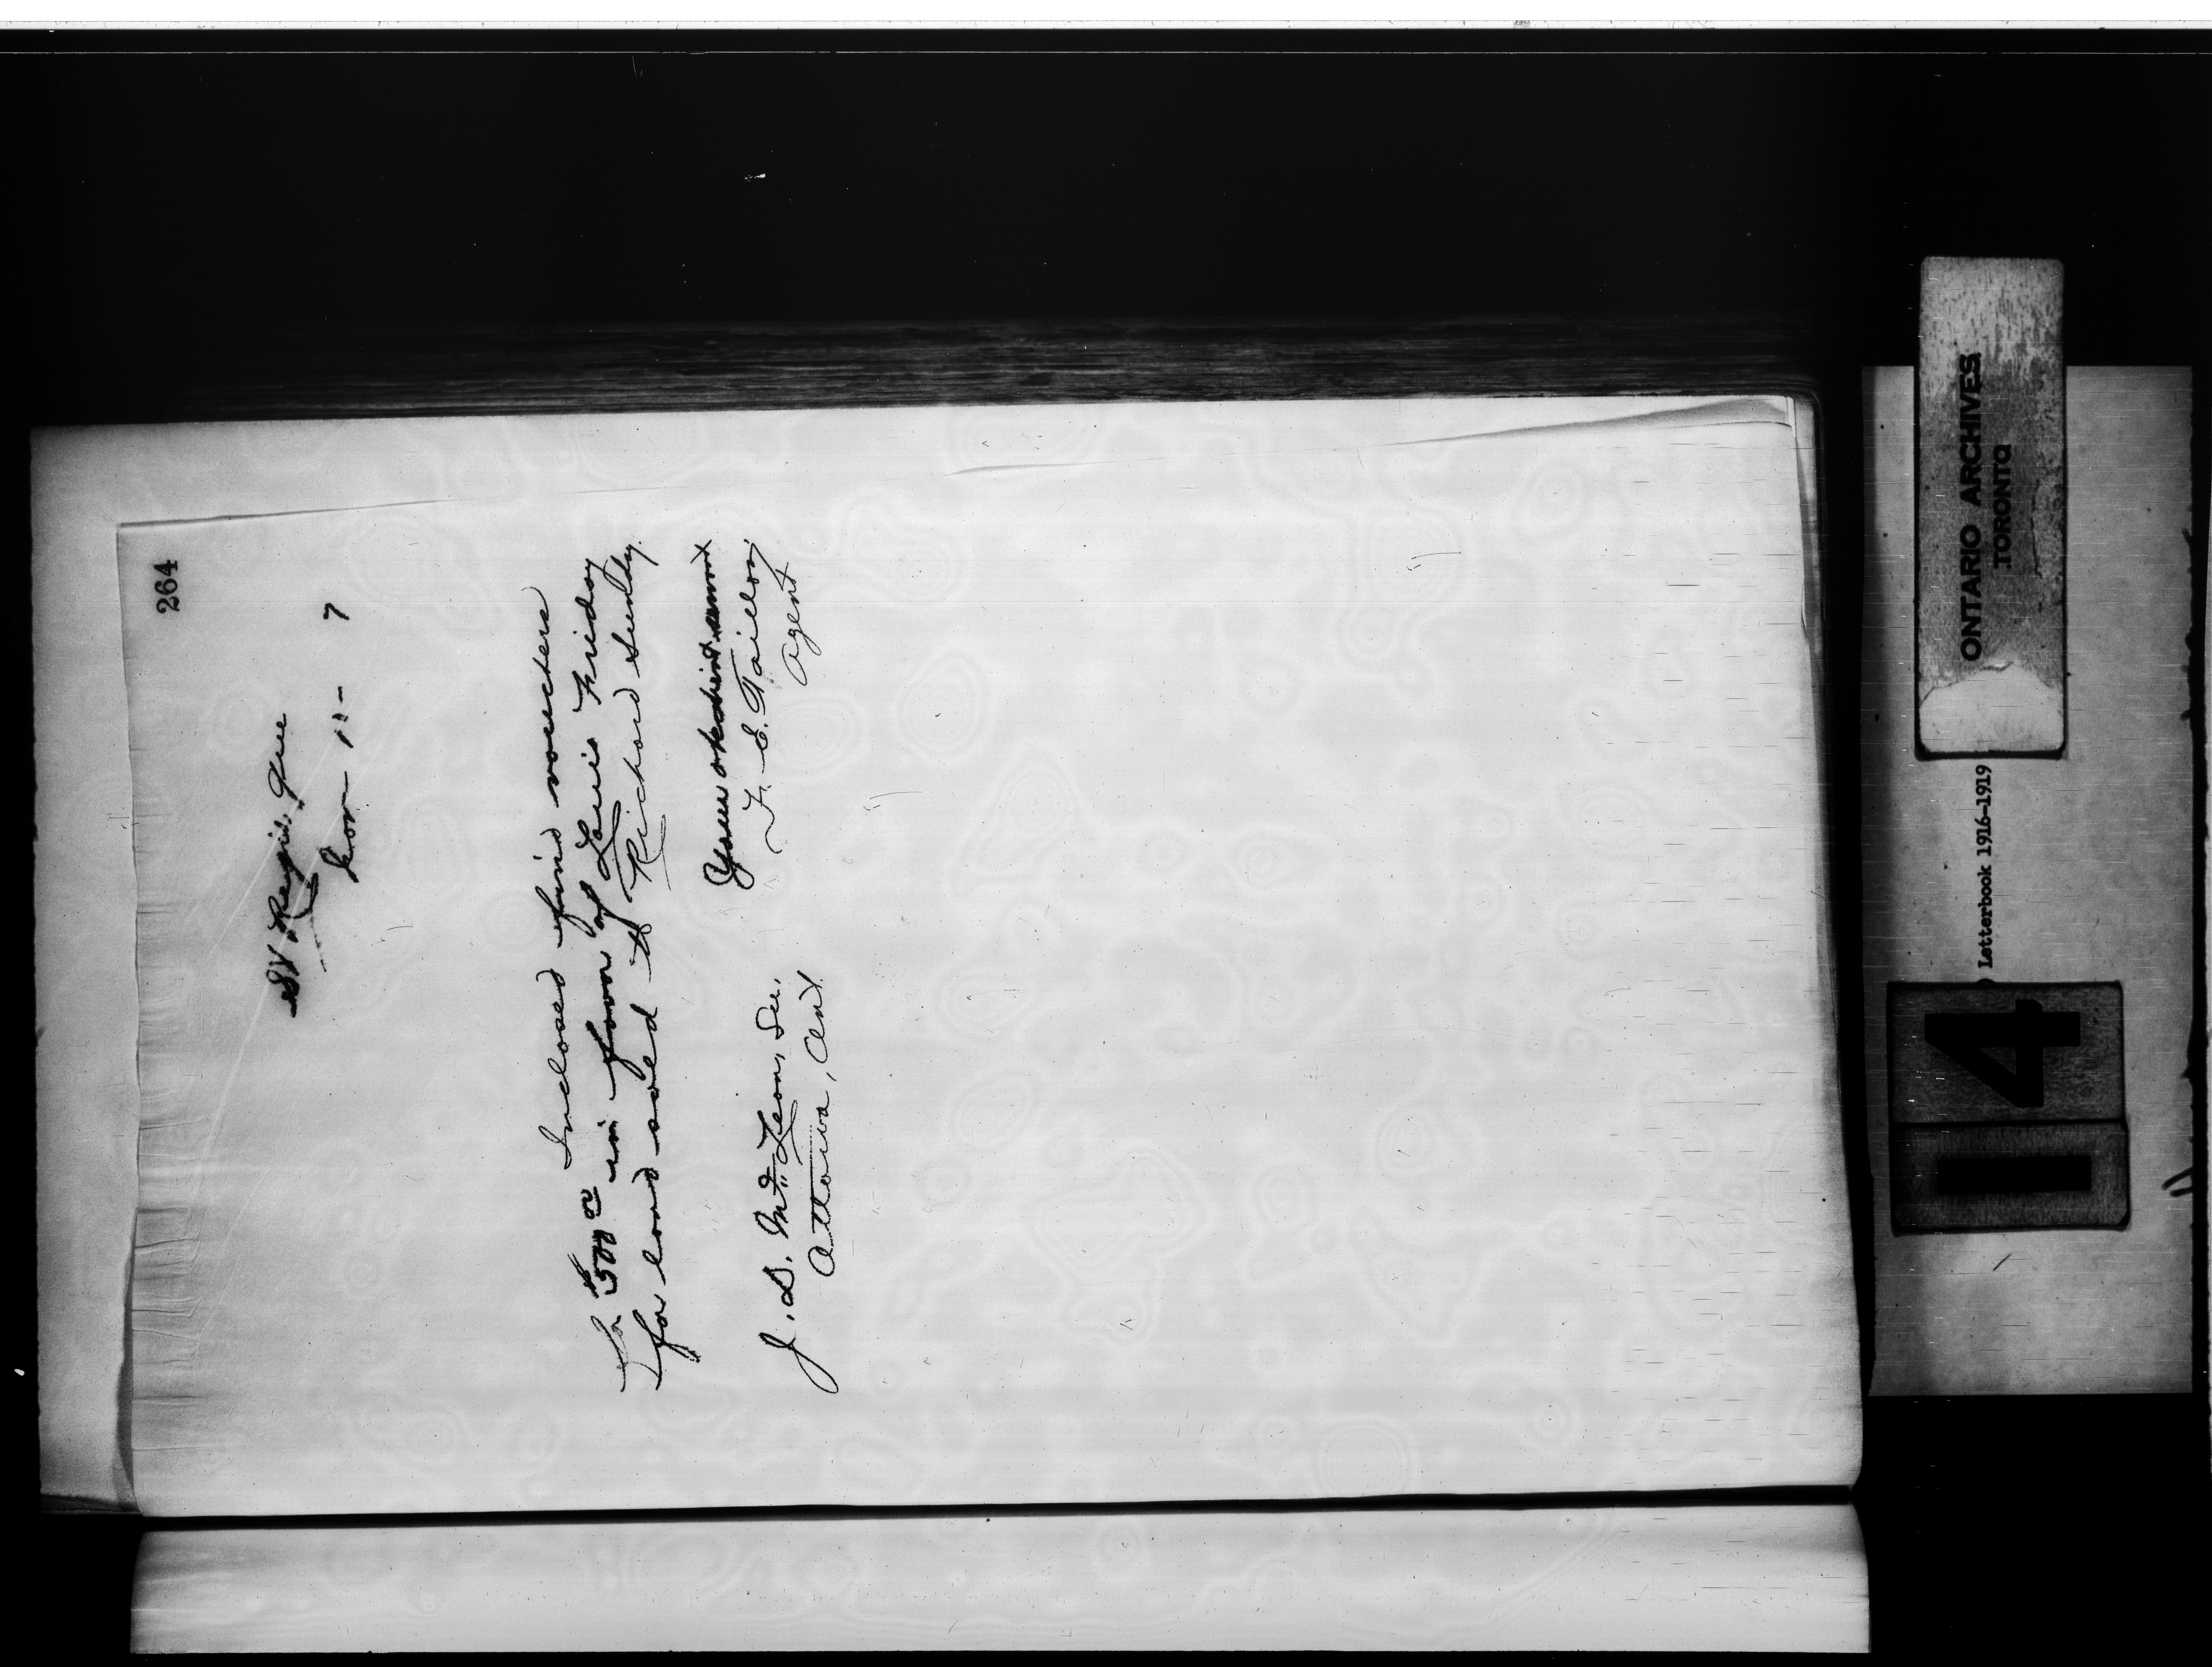 264
St. Regis, Que
7
Inclosed find vouchers
for $500 00 in favor of Louis Friday
for land sold to Richard Sunday.
Your obedient servant
F. E. Taillon,
Agent
J. D. McLean, Sec.
Ottawa, Ont
ONTARIO ARCHIVES
TORONTO
Letterbook 1916-1919
14